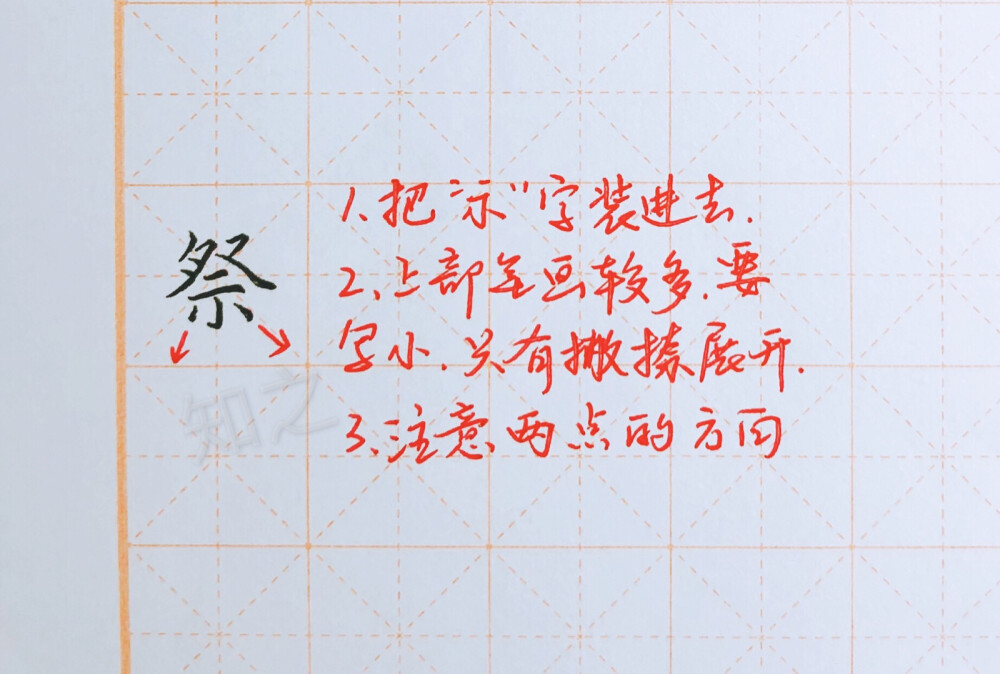 祭
1.把"示"字装进去.
2、上部笔画较多.要
写小.只有撇捺展开.
3、注意两点的方向
知之